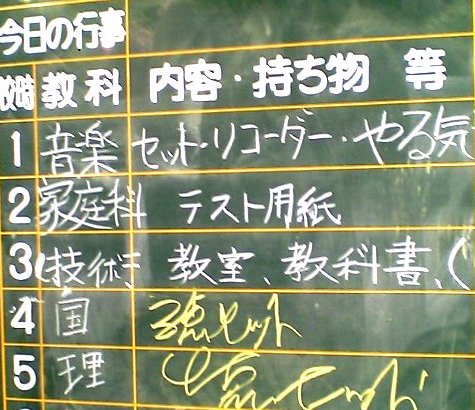 今日の行事
教科 内容・持ち物 等
1 音楽 セット・リコーダー・やる気
2 家庭科 テスト用紙
3 技術 教室、教科書、
4 国 セット
5 理 セット